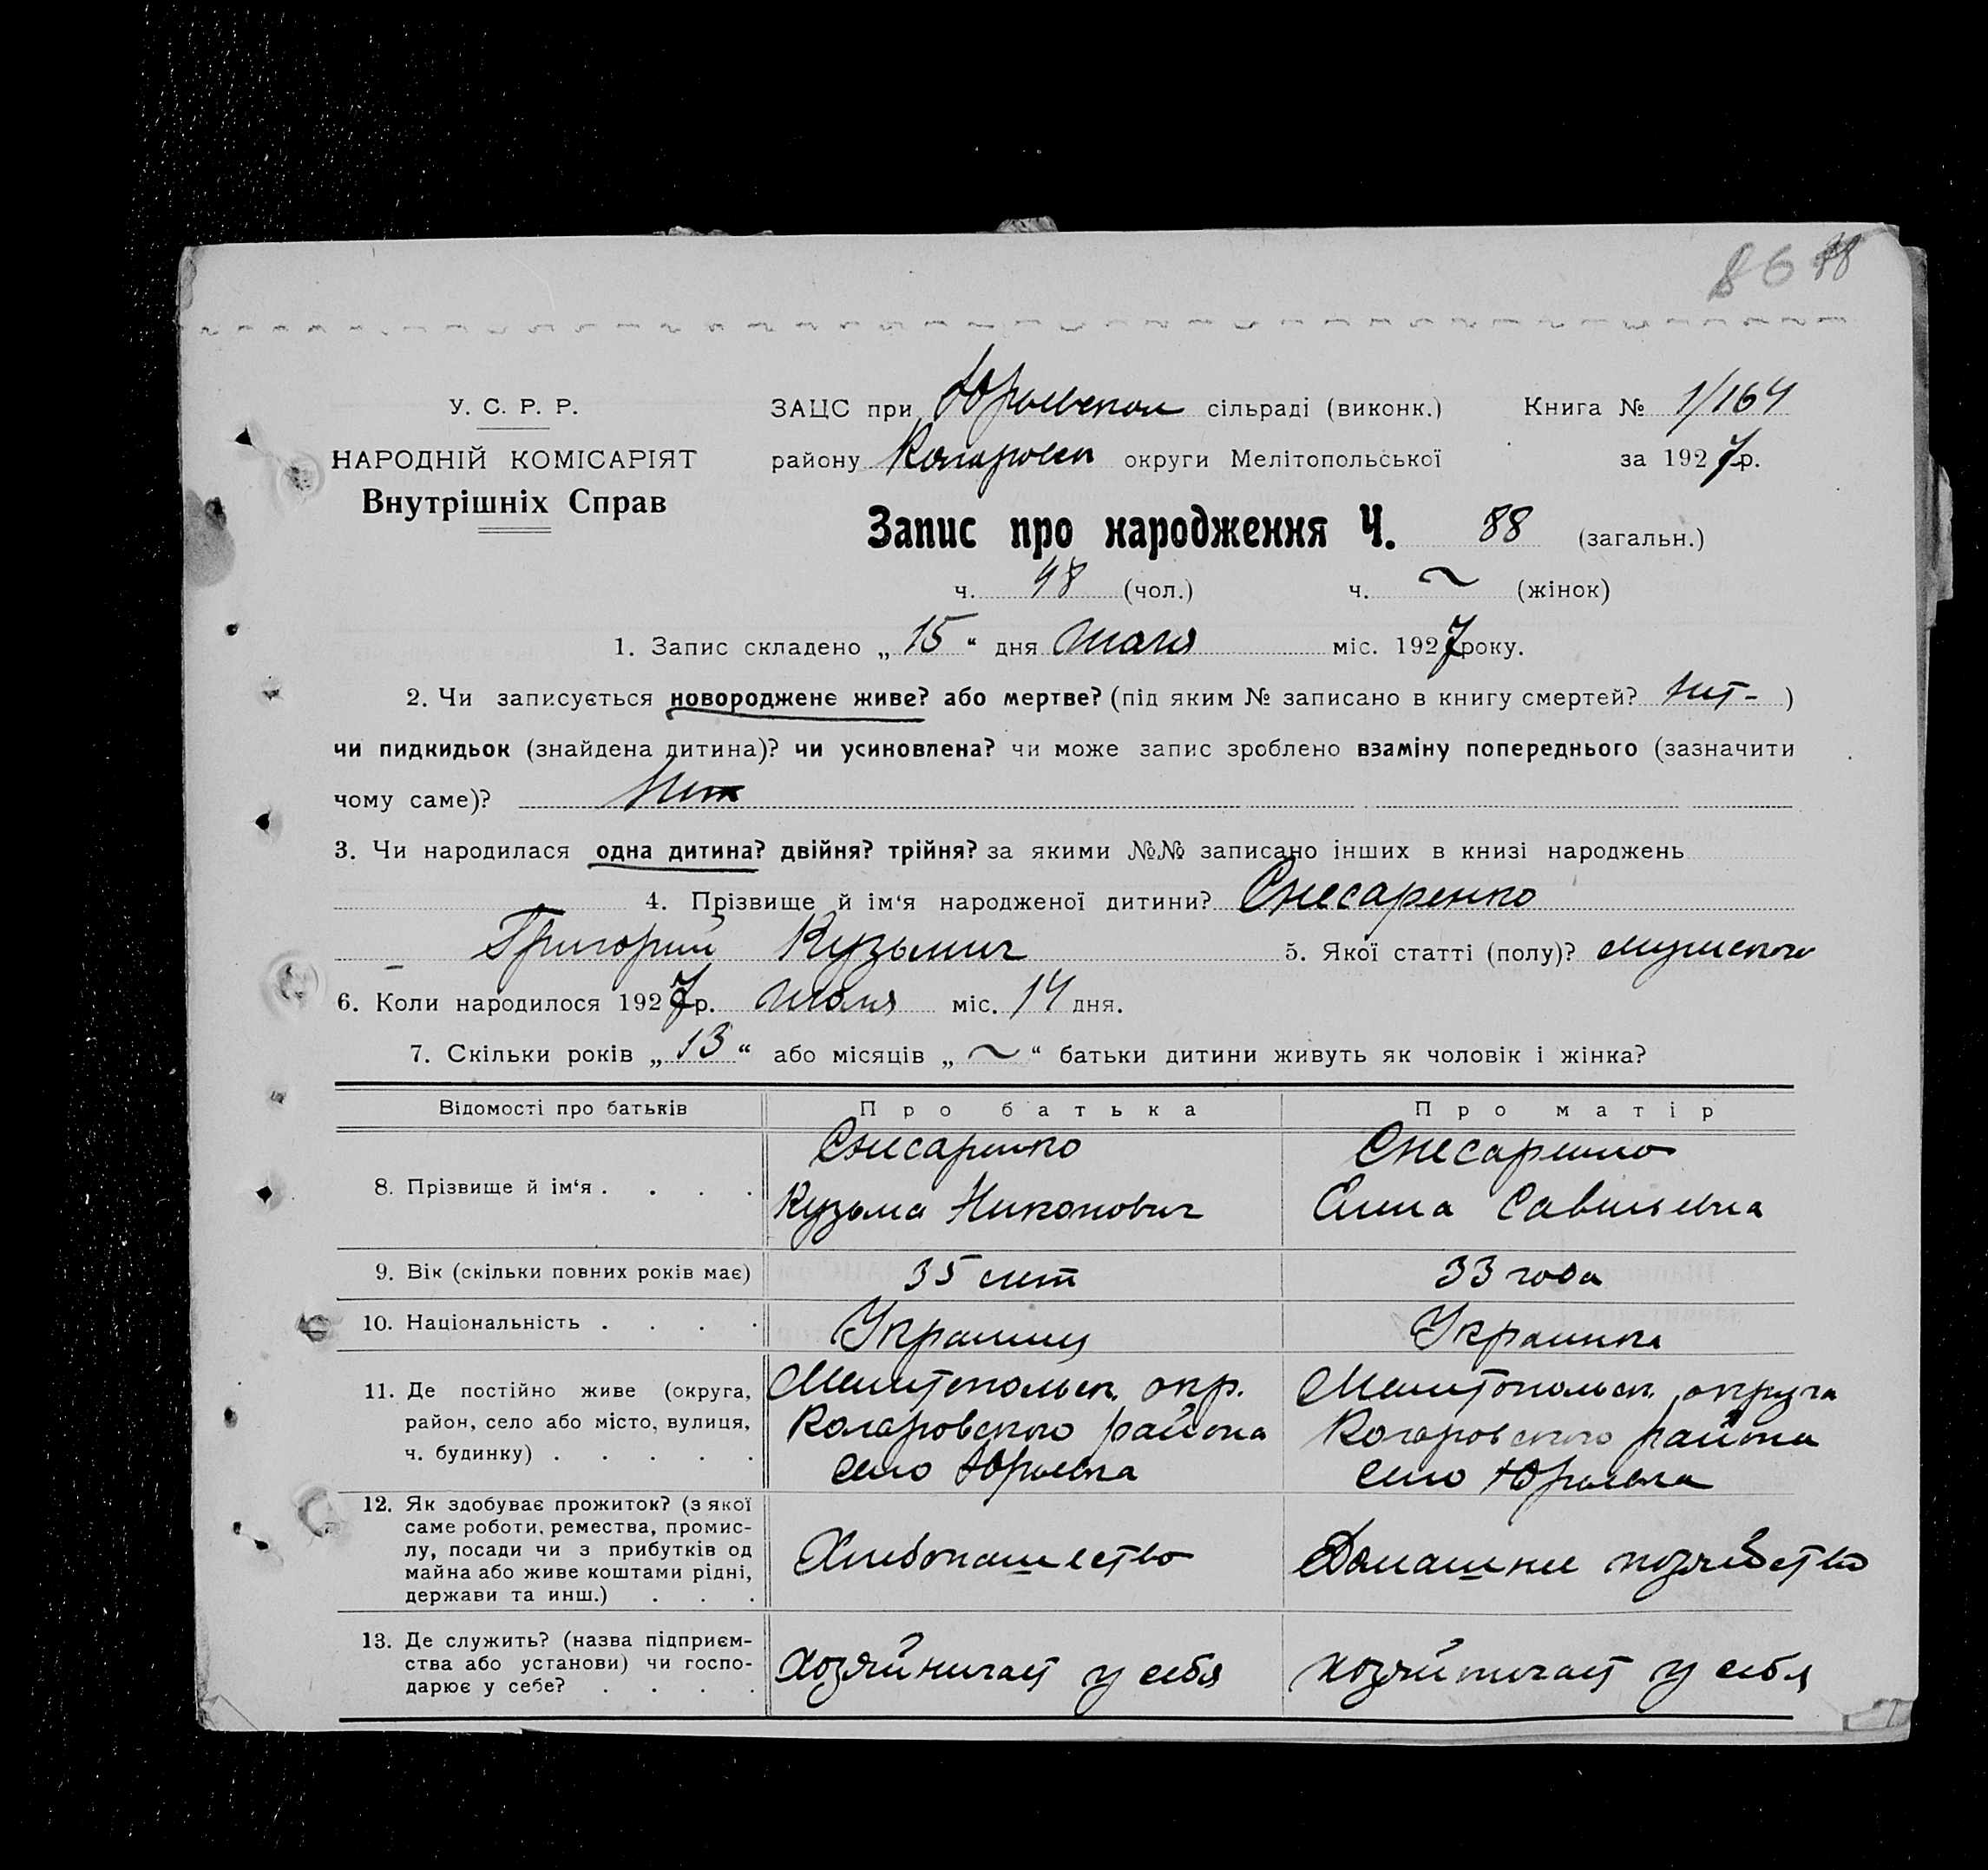 86 88
У. С. Р. Р.
НАРОДНІЙ КОМІСАРІЯТ
Внутрішніх Справ
ЗАЦС при Юрьевском сільраді (виконк.) Книга № 1/164
району Коларовск округи Мелітопольської за 1927 р.
Запис про народження Ч. 88 (загальн.)
ч. 48 (чол.) ч. ~ (жінок)
1. Запис складено „ 15 “ дня Июля міс. 1927 року.
2. Чи записується новороджене живе? або мертве? (під яким № записано в книгу смертей? Нет- )
чи пидкидьок (знайдена дитина)? чи усиновлена? чи може запис зроблено взаміну попереднього (зазначити
чому саме)? Нет
3. Чи народилася одна дитина? двійня? трійня? за якими №№ записано інших в книзі народжень
4. Прізвище й ім‘я народженої дитини? Снесаренко
Григорий Кузьмич 5. Якої статті (полу)? мужского
6. Коли народилося 1927 р. Июля міс. 14 дня.
7. Скільки років „ 13 “ або місяців „ ~ “ батьки дитини живуть як чоловік і жінка?
Відомості про батьків Про батька Про матір
8. Прізвище й ім‘я . . . .
Снесаренко
Кузьма Никонович
Снесаренко
Елена Савельевна
9. Вік (скільки повних років має) 35 лет 33 года
10. Національність . . . . Украинец Украинка
11. Де постійно живе (округа,
район, село або місто, вулиця,
ч. будинку) . . . . .
Мелитопольск. окр.
Коларовского района
село Юрьевка
Мелитопольск. округа
Коларовского района
село Юрьевка
12. Як здобуває прожиток? (з якої
саме роботи, ремества, промис-
лу, посади чи з прибутків од
майна або живе коштами рідні,
держави та инш.) . . .
Хлебопашество
Домашнее хозяйство
13. Де служить? (назва підприєм-
ства або установи) чи госпо-
дарює у себе? . . . .
хозяйничает у себя
хозяйничает у себя